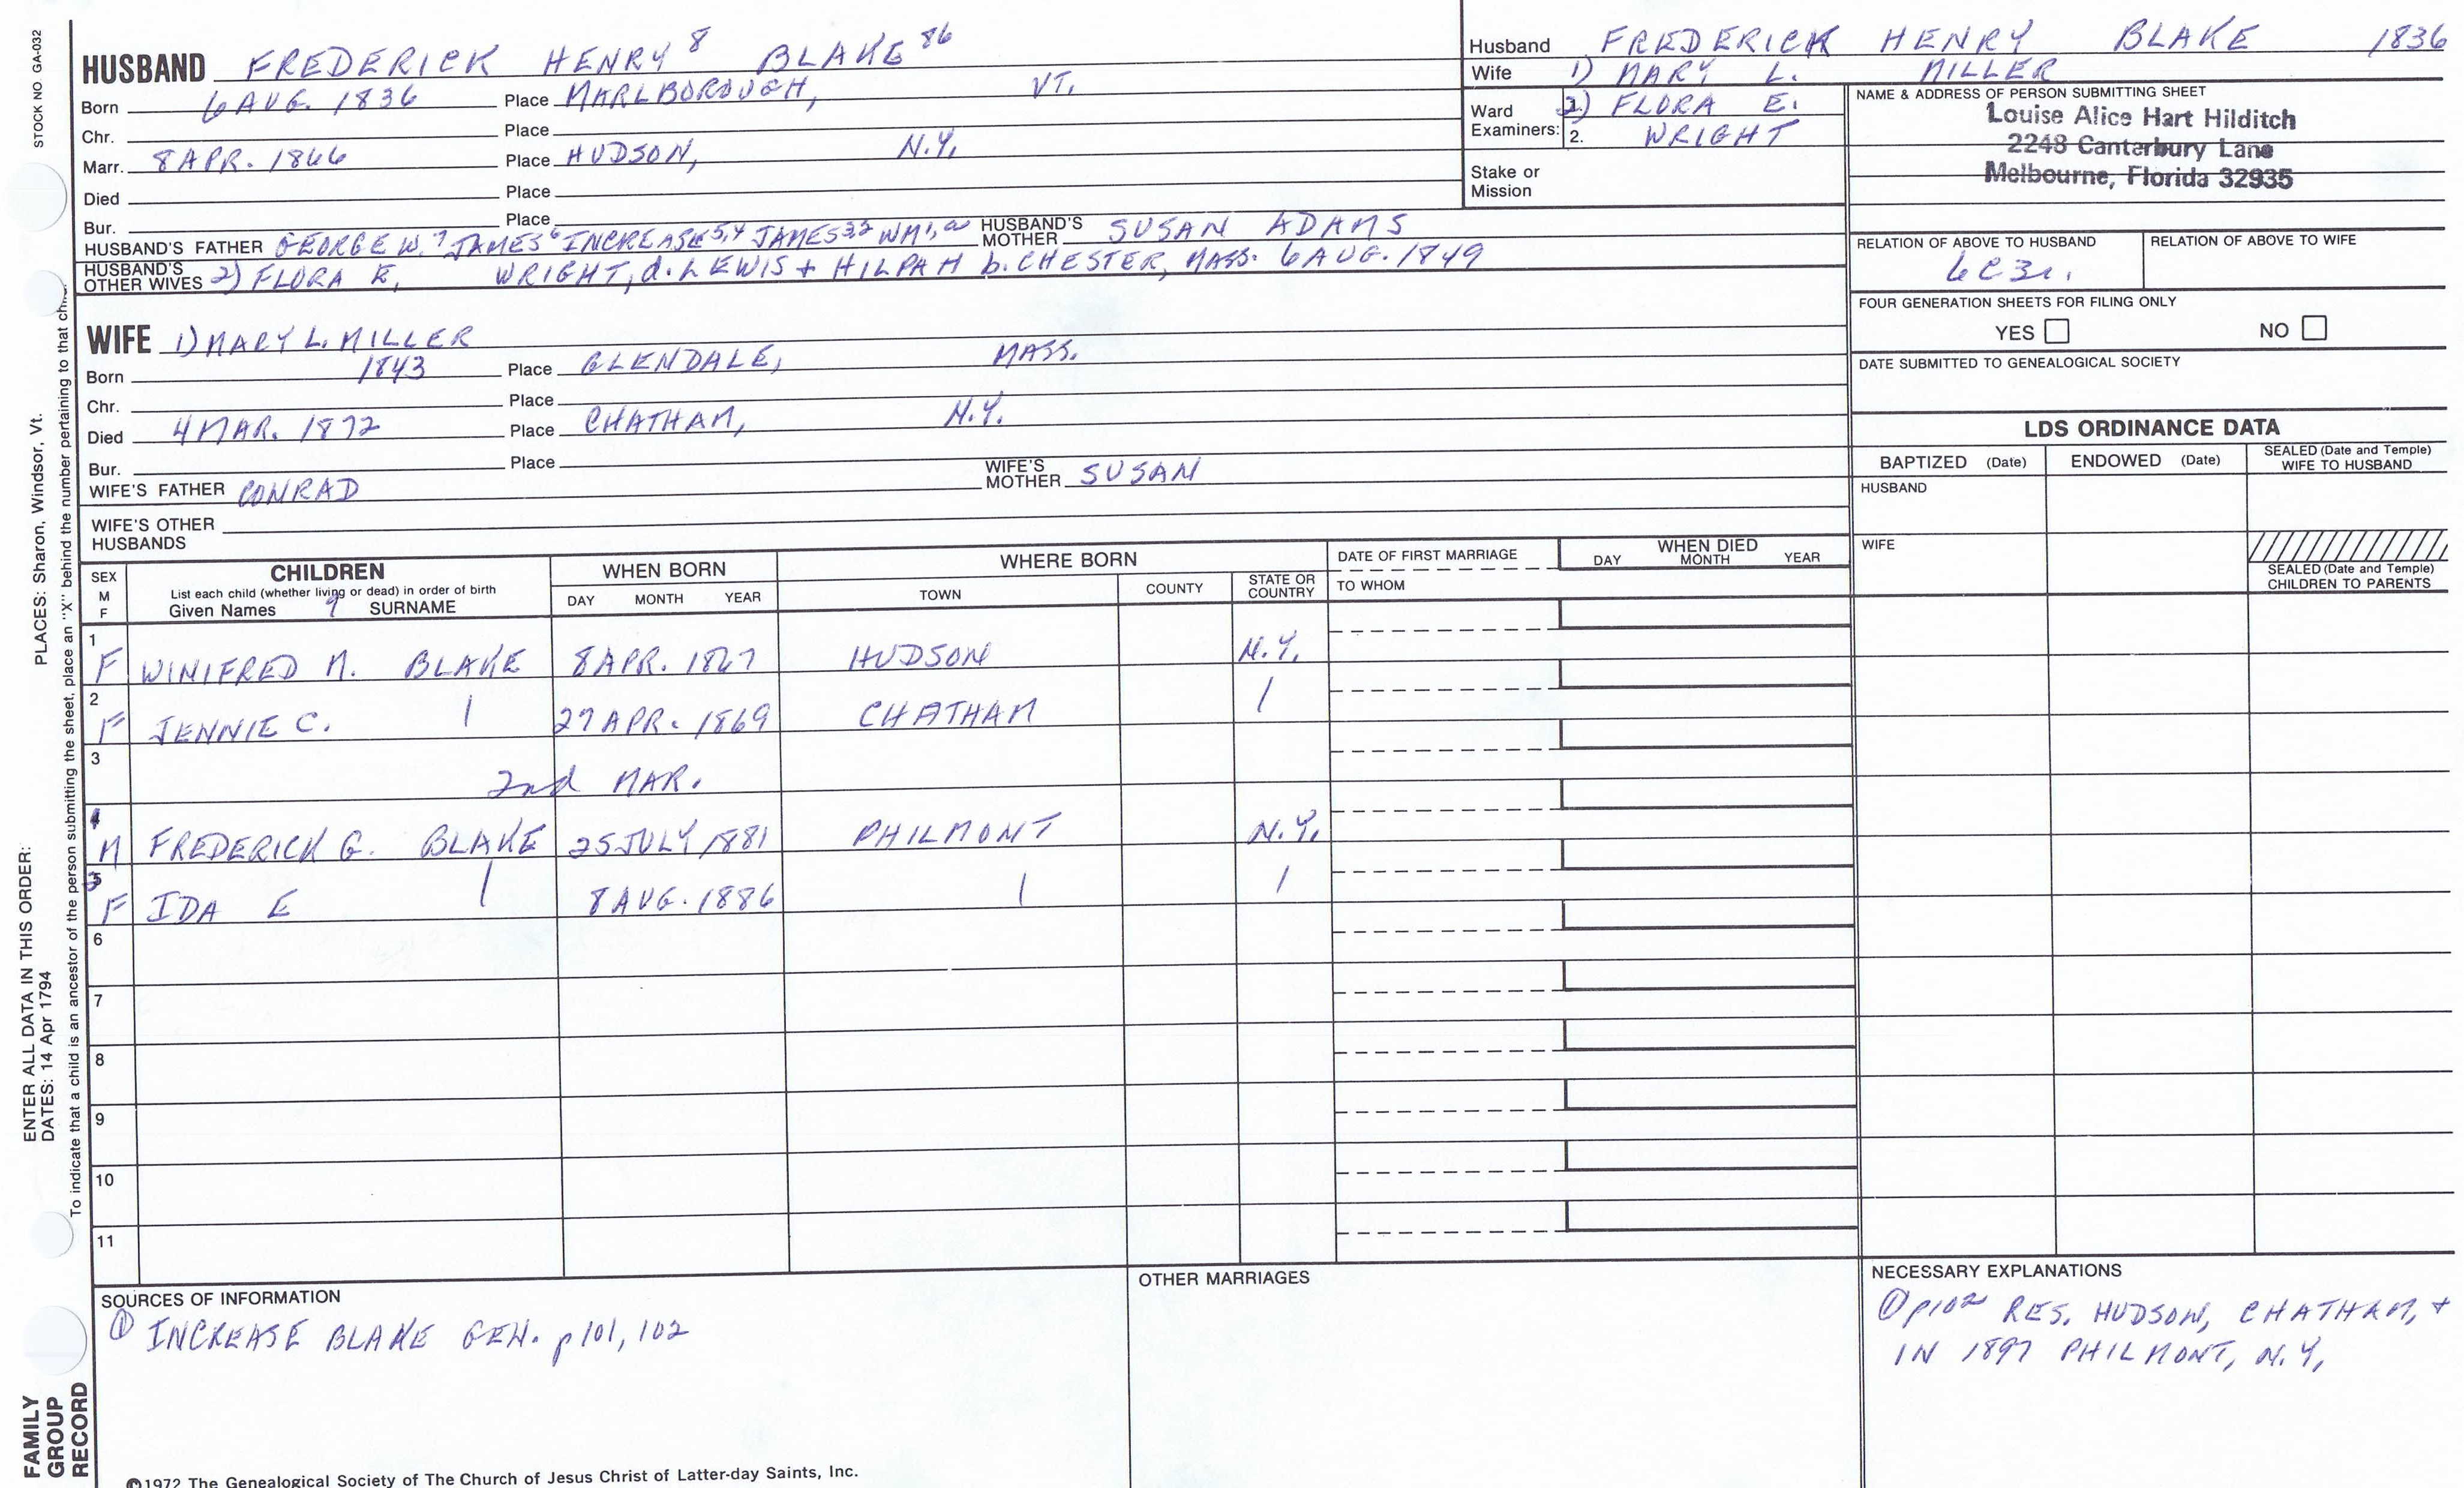 STOCK NO. GA-032
HUSBAND FREDERICK HENRY 8 BLAKE 86
Born 6 AUG. 1836 Place MARLBOROUGH, VT.
Chr. Place
Marr. 8 APR. 1866 Place HUDSON, N.Y.
Died Place
Bur. Place
HUSBAND'S FATHER GEORGE W. 7 JAMES 6 INCREASE 5,4 JAMES 3,2 WM 1, HUSBAND'S MOTHER SUSAN ADAMS
HUSBAND'S OTHER WIVES 2) FLORA E. WRIGHT, d. LEWIS + HILPAH b. CHESTER, MASS. 6 AUG. 1849
Husband FREDERICK HENRY BLAKE 1836
Wife 1) MARY L. MILLER
Ward Examiners: 1. 2) FLORA E.
2. WRIGHT
Stake or Mission
NAME & ADDRESS OF PERSON SUBMITTING SHEET
Louise Alice Hart Hilditch
2248 Canterbury Lane
Melbourne, Florida 32935
RELATION OF ABOVE TO HUSBAND RELATION OF ABOVE TO WIFE
6C3r.
FOUR GENERATION SHEETS FOR FILING ONLY
YES NO
DATE SUBMITTED TO GENEALOGICAL SOCIETY
WIFE 1) MARY L. MILLER
Born 1843 Place GLENDALE, MASS.
Chr. Place
Died 4 MAR. 1872 Place CHATHAM, N.Y.
Bur. Place
WIFE'S FATHER CONRAD WIFE'S MOTHER SUSAN
WIFE'S OTHER HUSBANDS
LDS ORDINANCE DATA
BAPTIZED (Date) ENDOWED (Date) SEALED (Date and Temple) WIFE TO HUSBAND
HUSBAND
WIFE
SEALED (Date and Temple) CHILDREN TO PARENTS
SEX M F CHILDREN WHEN BORN WHERE BORN DATE OF FIRST MARRIAGE WHEN DIED
List each child (whether living or dead) in order of birth
Given Names 9 SURNAME DAY MONTH YEAR TOWN COUNTY STATE OR COUNTRY TO WHOM DAY MONTH YEAR
1 F WINIFRED M. BLAKE 8 APR. 1867 HUDSON N.Y.
2 F JENNIE C. | 27 APR. 1869 CHATHAM |
3 2nd MAR.
4 M FREDERICK G. BLAKE 25 JULY 1881 PHILMONT N.Y.
5 F IDA E | 8 AUG. 1886 | |
6
7
8
9
10
11
SOURCES OF INFORMATION
① INCREASE BLAKE GEN. p101, 102
OTHER MARRIAGES
NECESSARY EXPLANATIONS
① p102 RES. HUDSON, CHATHAM, +
IN 1897 PHILMONT, N.Y.
©1972 The Genealogical Society of The Church of Jesus Christ of Latter-day Saints, Inc.
FAMILY
GROUP
RECORD
ENTER ALL DATA IN THIS ORDER:
DATES: 14 Apr 1794 PLACES: Sharon, Windsor, Vt.
To indicate that a child is an ancestor of the person submitting the sheet, place an "X" behind the number pertaining to that